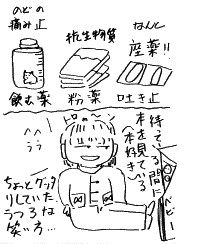 のどの
痛み止
飲む薬
抗生物質
粉薬
なんと
座薬!!
吐き止
トローン
待っている間
本を見ている
(本好き)
ちょっとグッタ
リしていた。
うつろな
笑い方…
ベビー